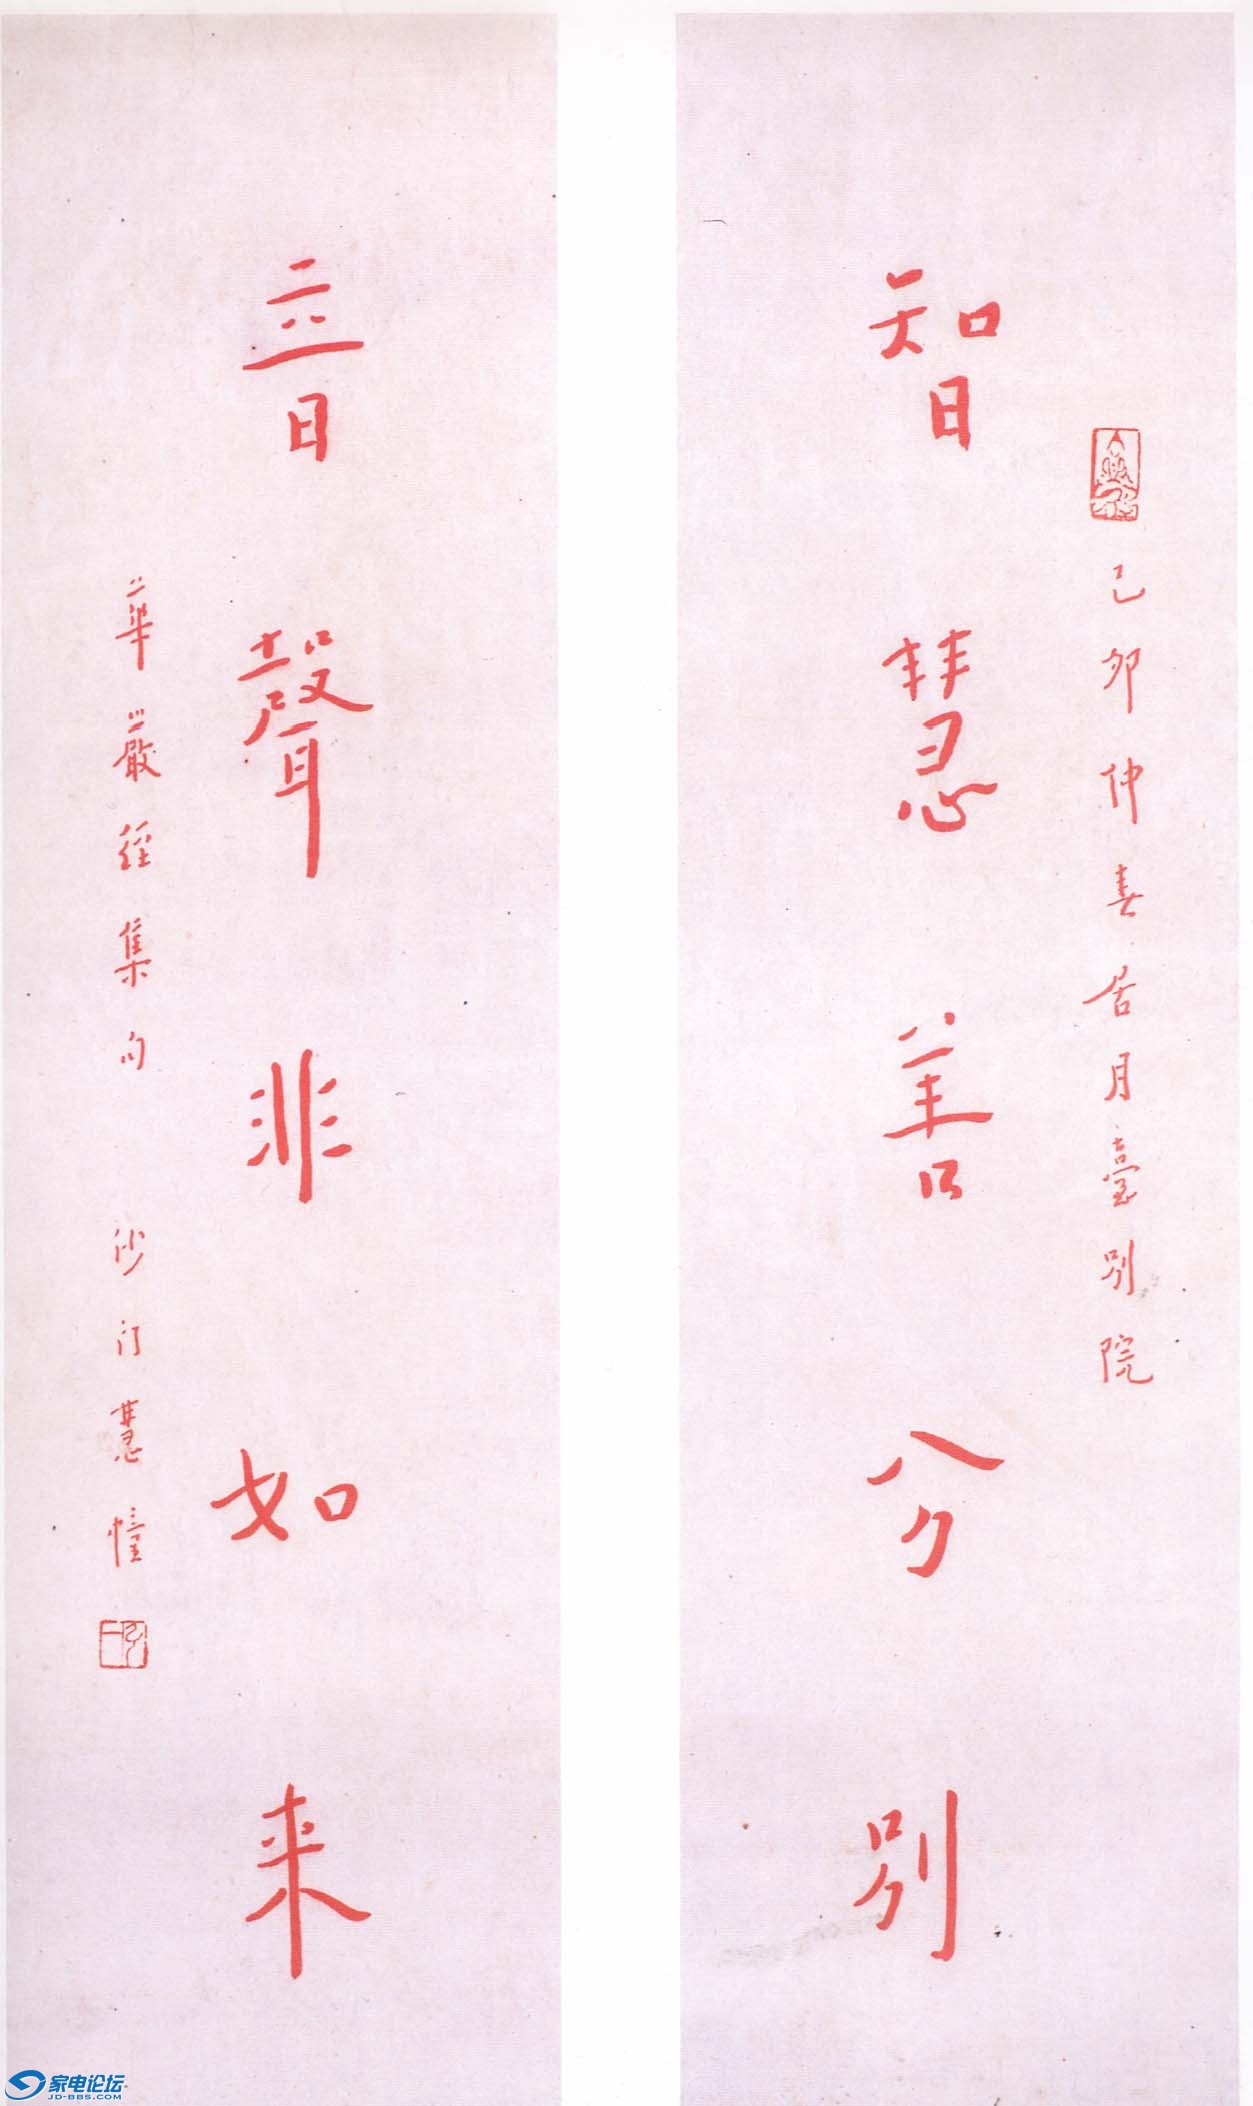 己卯仲春居月臺別院
智慧善分別
音聲非如来
華嚴經集句 沙门慧幢
家电论坛
JD-BBS.COM